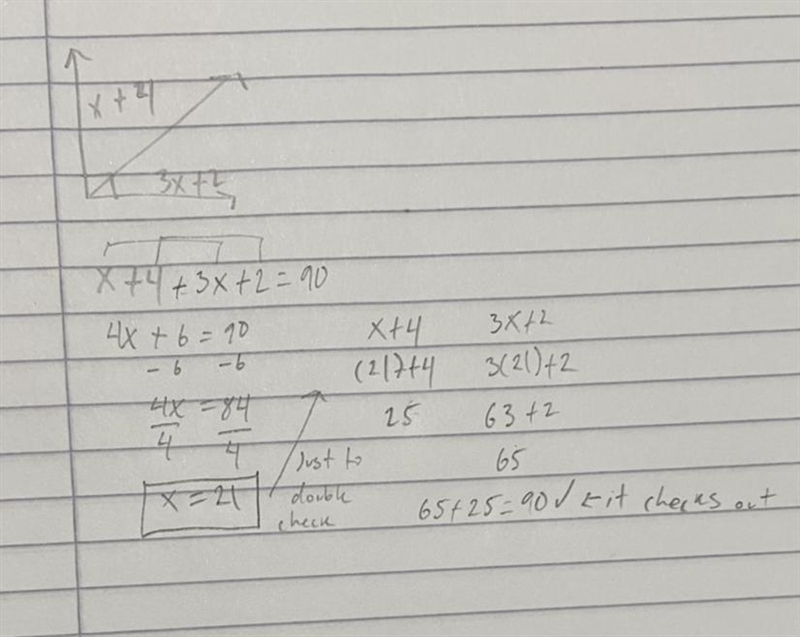 x + 4
3x + 2
x + 4 + 3x + 2 = 90
4x + 6 = 90
- 6 - 6
4x = 84
4 4
x = 21
Just to
double
check
x + 4 3x + 2
(21) + 4 3(21) + 2
25 63 + 2
65
65 + 25 = 90 ✓ ← it checks out